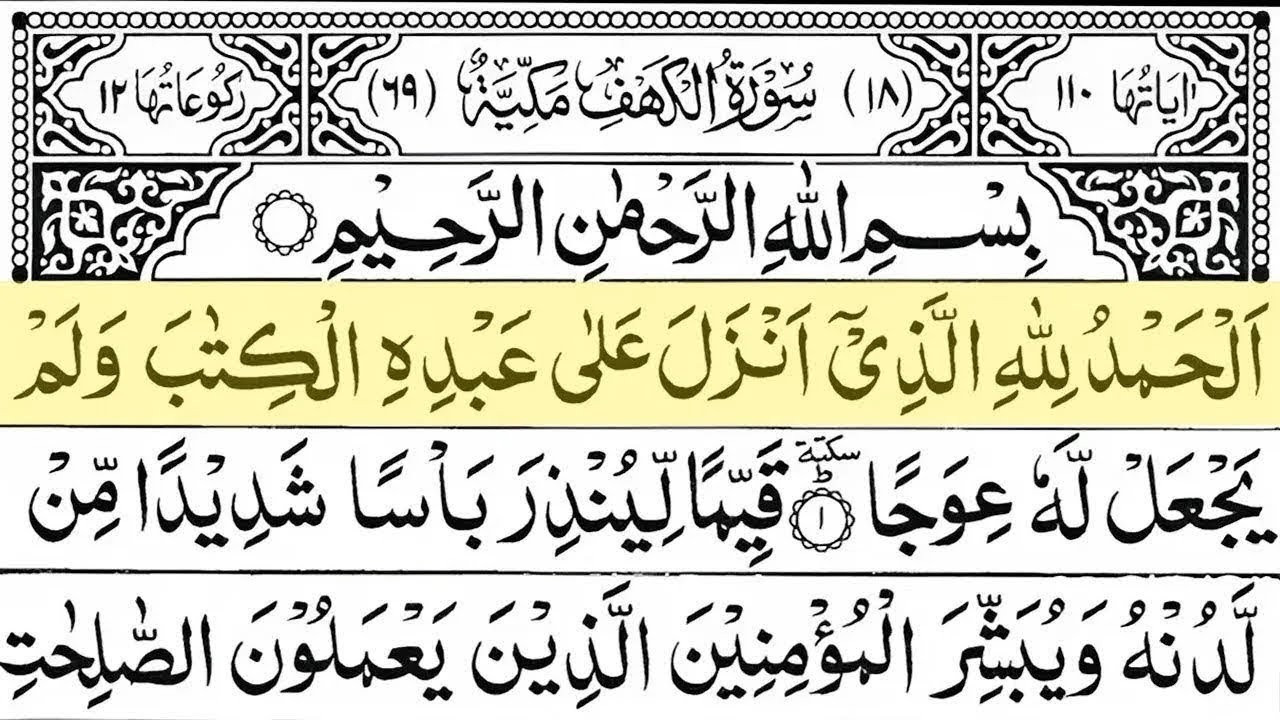 اٰيَاتُهَا ١١٠ (١٨) سُوْرَةُ الْكَهْفِ مَكِّيَّةٌ (٦٩) رُكُوْعَاتُهَا ١٢
بِسْمِ اللّٰهِ الرَّحْمٰنِ الرَّحِيْمِ
اَلْحَمْدُ لِلّٰهِ الَّذِيْٓ اَنْزَلَ عَلٰى عَبْدِهِ الْكِتٰبَ وَلَمْ
يَجْعَلْ لَّهٗ عِوَجًا ؕ سكتة ١ قَيِّمًا لِّيُنْذِرَ بَاْسًا شَدِيْدًا مِّنْ
لَّدُنْهُ وَيُبَشِّرَ الْمُؤْمِنِيْنَ الَّذِيْنَ يَعْمَلُوْنَ الصّٰلِحٰتِ